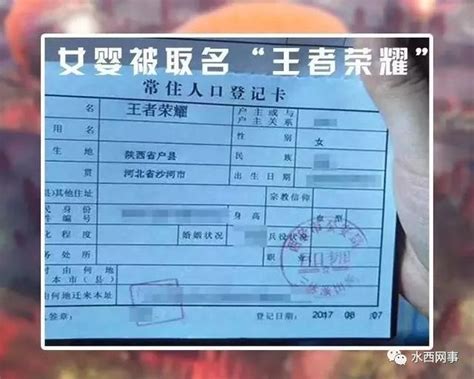 女婴被取名“王者荣耀”
常住人口登记卡
名 王者荣耀 户主或与
户主关系
用名 性别 女
生地 陕西省户县 民族
贯 河北省沙河市 出生日期
县)其他住址 宗教信仰
民身份
件编号 身高 血型
化程度 婚姻状况 兵役状况
务处所 职业
时由何地
本市(县)
由何地迁来本址
人签章: 登记日期: 2017 08 07
水西网事